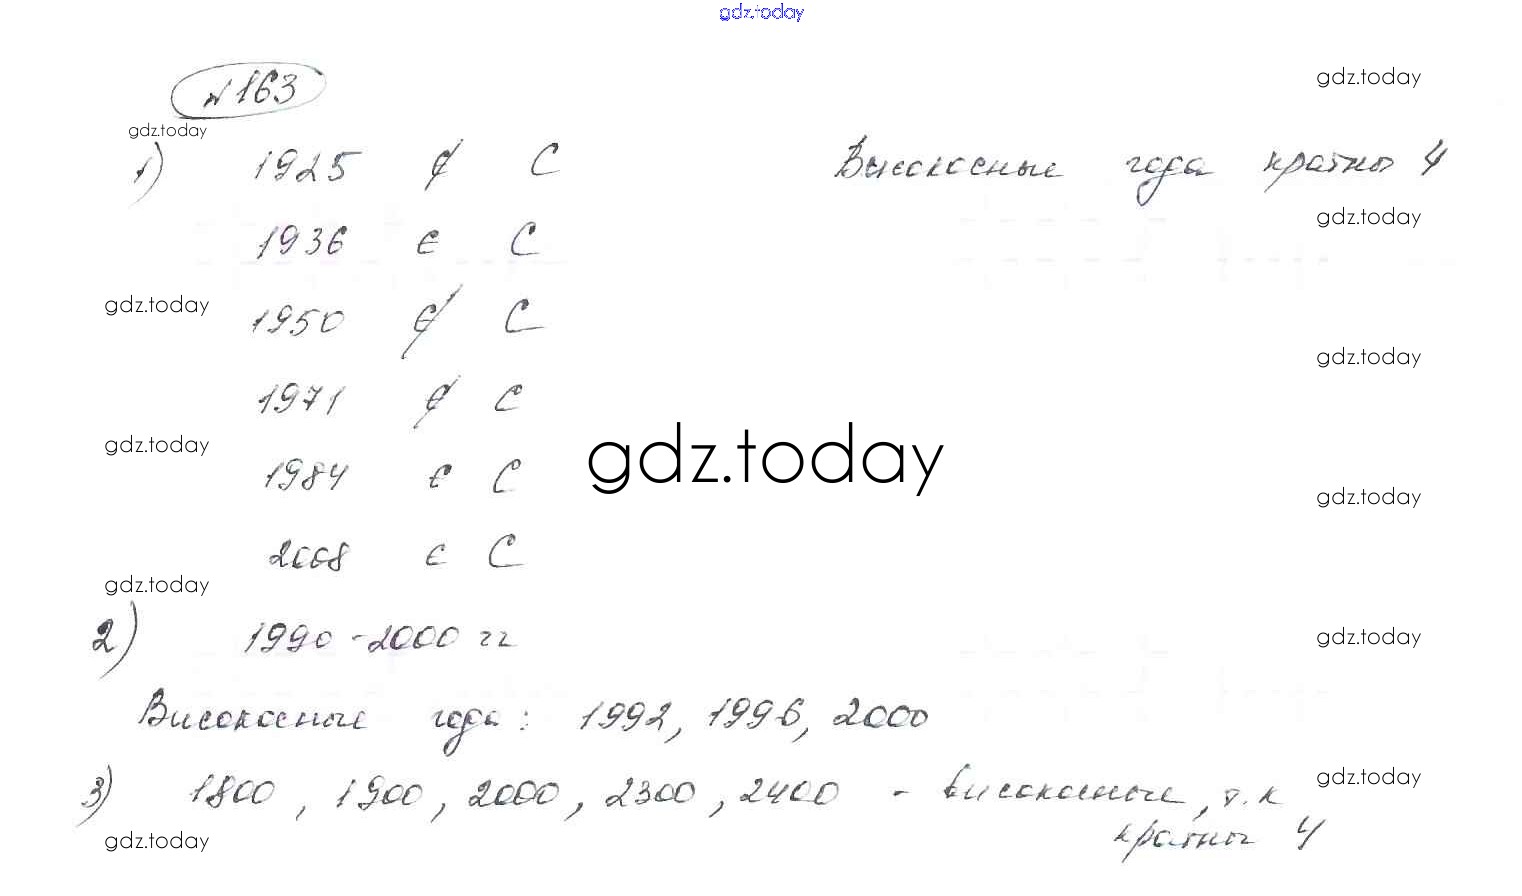 gdz.today
№163
gdz.today
gdz.today
1) 1925 ∉ C Високосные года кратны 4
gdz.today
1936 ∈ C
gdz.today
1950 ∉ C
gdz.today
1971 ∉ C
gdz.today
gdz.today
1984 ∈ C
gdz.today
2008 ∈ C
gdz.today
2) 1990-2000 гг
gdz.today
Високосные года: 1992, 1996, 2000
gdz.today
3) 1800, 1900, 2000, 2300, 2400 - високосные, т.к
кратны 4
gdz.today